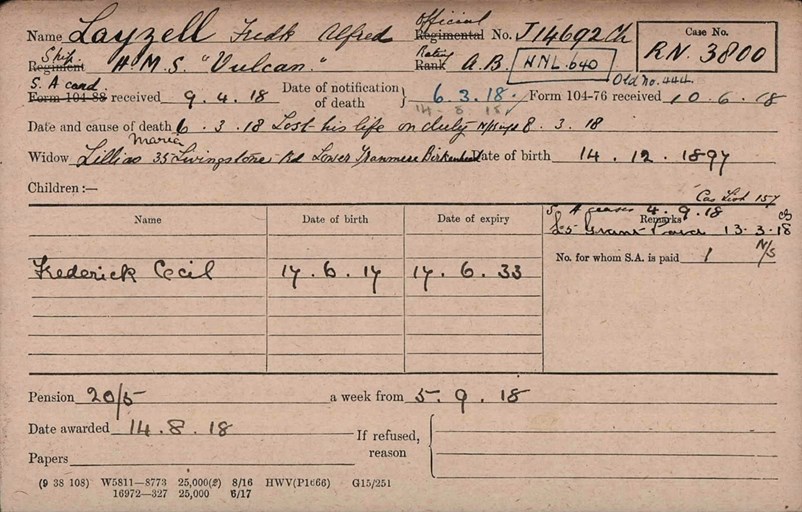 Name Layzell Fredk Alfred Official Regimental No. J14692 Ch Case No.
Ship Regiment H.M.S. "Vulcan." Rating Rank A.B. WNL.640 RN. 3800
S. A card Old No. 444
Form 104-88 received 9.4.18 Date of notification of death } 6.3.18. Form 104-76 received 10.6.18
14.8.18
Date and cause of death 6.3.18 Lost his life on duty 8.3.18
Maria
Widow Lillias 35 Livingstone Rd Lower Tranmere Birkenhead Date of birth 14.12.1897
Children:— Cas List 157
Name Date of birth Date of expiry Remarks
S. A ceases 4.9.18
£5 Grant 13.3.18
No. for whom S.A. is paid 1 N/S
Frederick Cecil 17.6.17 17.6.33
Pension 20/5 a week from 5.9.18
Date awarded 14.8.18
If refused, reason
Papers
(9 38 108) W5811—8773 25,000(2) 8/16 HWV(P1666) G15/251
16972—327 25,000 6/17